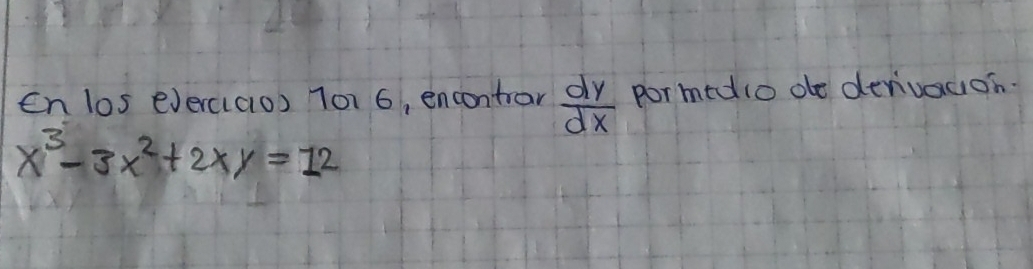 En los ejercicios 1 al 6, encontrar dy/dx por medio de derivación.
x³-3x²+2xy=12